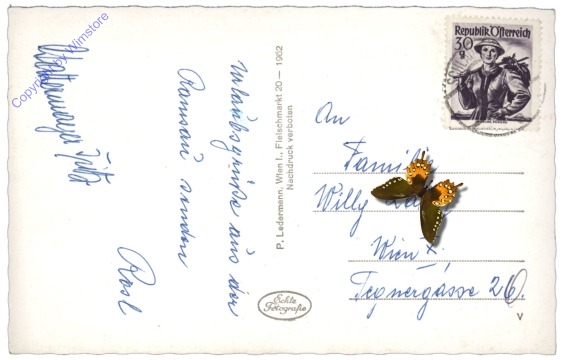 Urlaubsgrüße aus der
Ramsau senden
Rosl
Copyright by Wimstore
P. Ledermann, Wien I., Fleischmarkt 20 — 1902
Nachdruck verboten
Echte
Fotografie
Republik Österreich
30
g
An
Familie
Willy
Wien X.
Tegnergasse 26
V